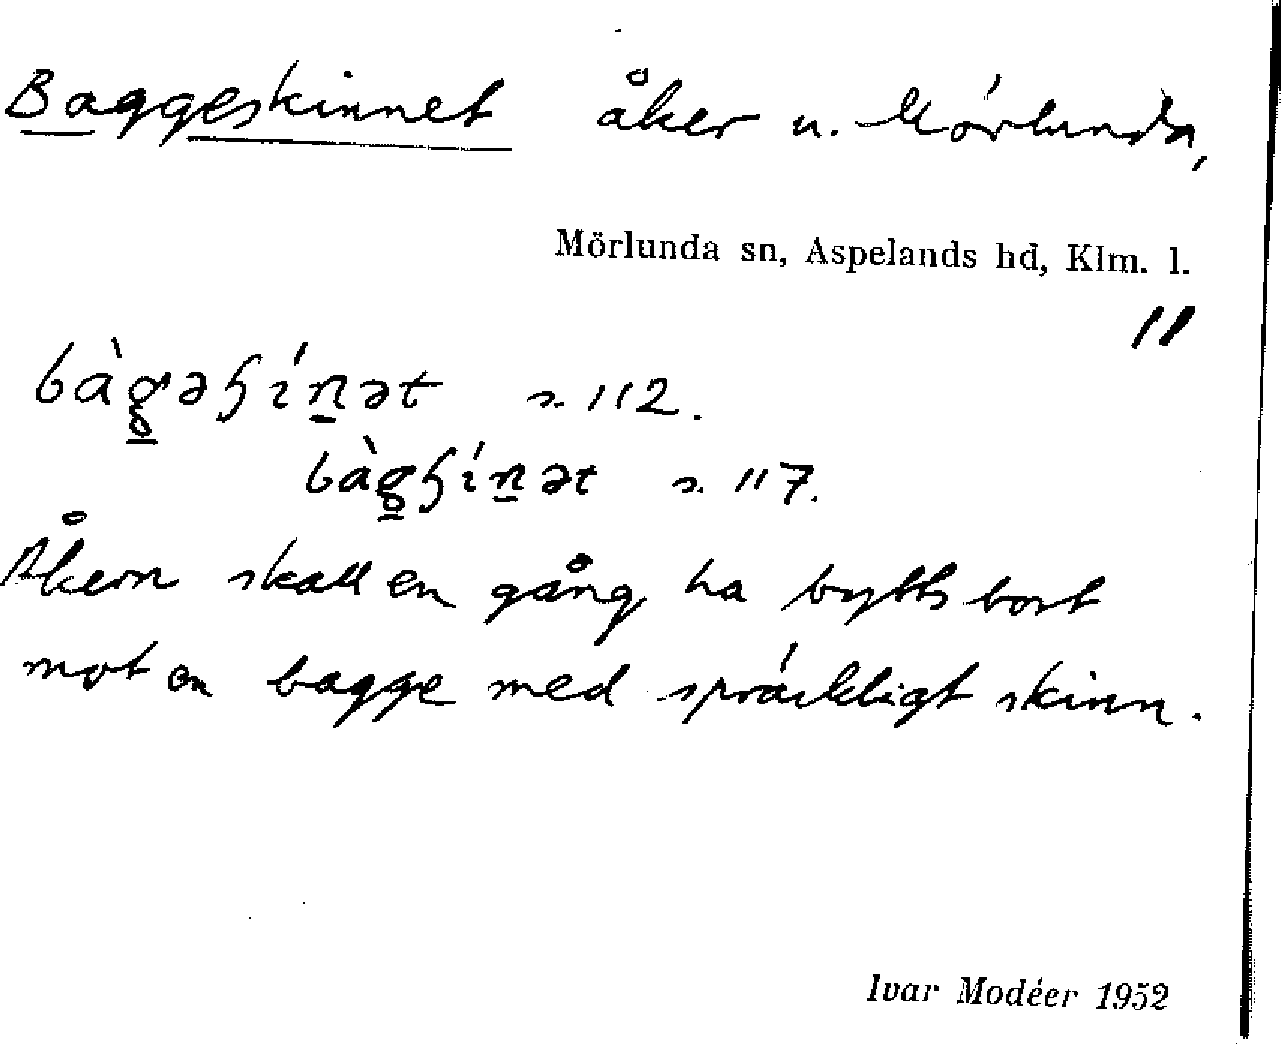 Baggeskinnet åker u. Mörlunda,
Mörlunda sn, Aspelands hd, Klm. l.
11
bàg̱əɧíṉət s. 112.
bàg̱ɧíṉət s. 117.
Åkern skall en gång ha bytts bort
mot en bagge med spräckligt skinn.
Ivar Modéer 1952